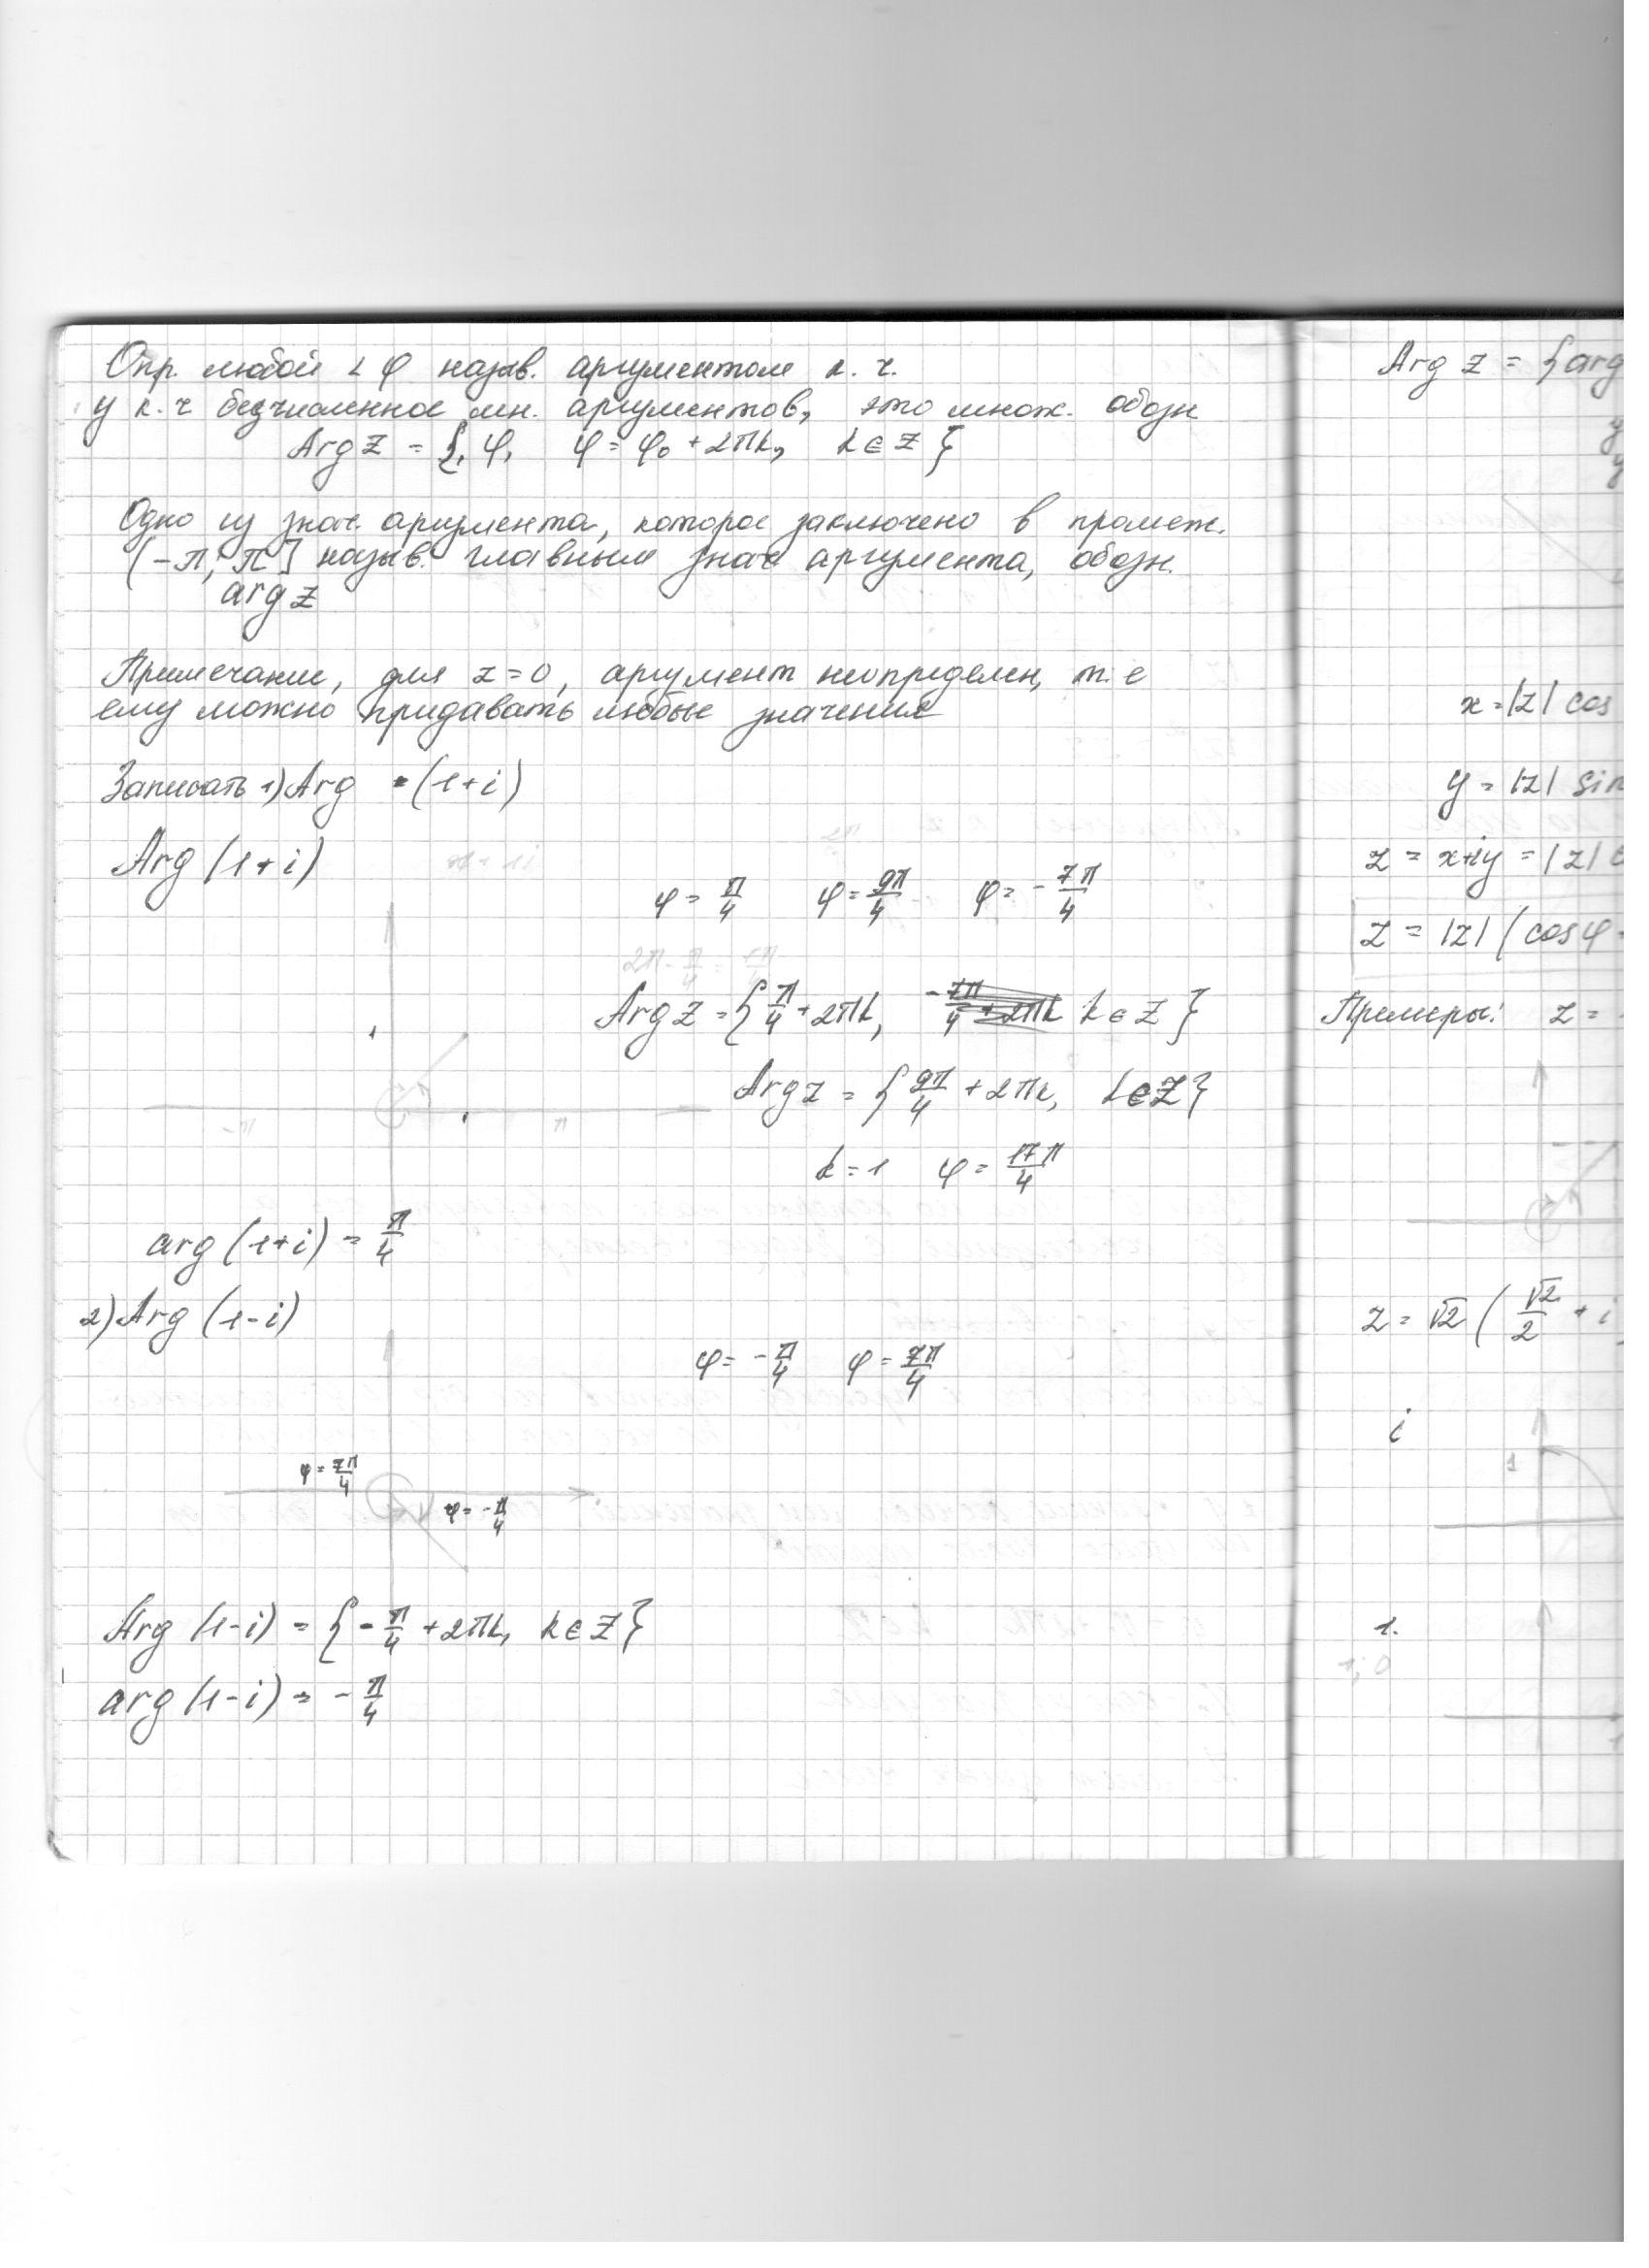 Опр. любой ∠ φ назыв. аргументом к. ч.
у к. ч бесчисленное мн. аргументов, это множ. обозн
Arg z = {, φ, φ = φ₀ + 2πk, k ∈ Z }
Одно из знач. аргумента, которое заключено в промеж.
(-π; π] назыв. главным знач аргумента, обозн.
arg z
Примечание, для z=0, аргумент неопределен, т. е
ему можно придавать любые значения
Записать 1) Arg (1+i)
Arg (1+i)
φ = π/4 φ = 9π/4 φ = -7π/4
2π - π/4 = 7π/4
Arg z = { π/4 + 2πk, -7π/4 + 2πk k ∈ Z }
Arg z = { 9π/4 + 2πk, k ∈ Z }
-π π
k = 1 φ = 17π/4
arg (1+i) = π/4
2) Arg (1-i)
φ = -π/4 φ = 7π/4
φ = 7π/4
φ = -π/4
Arg (1-i) = { -π/4 + 2πk, k ∈ Z }
arg (1-i) = -π/4
Arg z = { arg
x = |z| cos
y = |z| sin
z = x+iy = |z|
z = |z| ( cos φ
Примеры: z =
z = √2 ( √2/2 + i
i
1
1.
1; 0